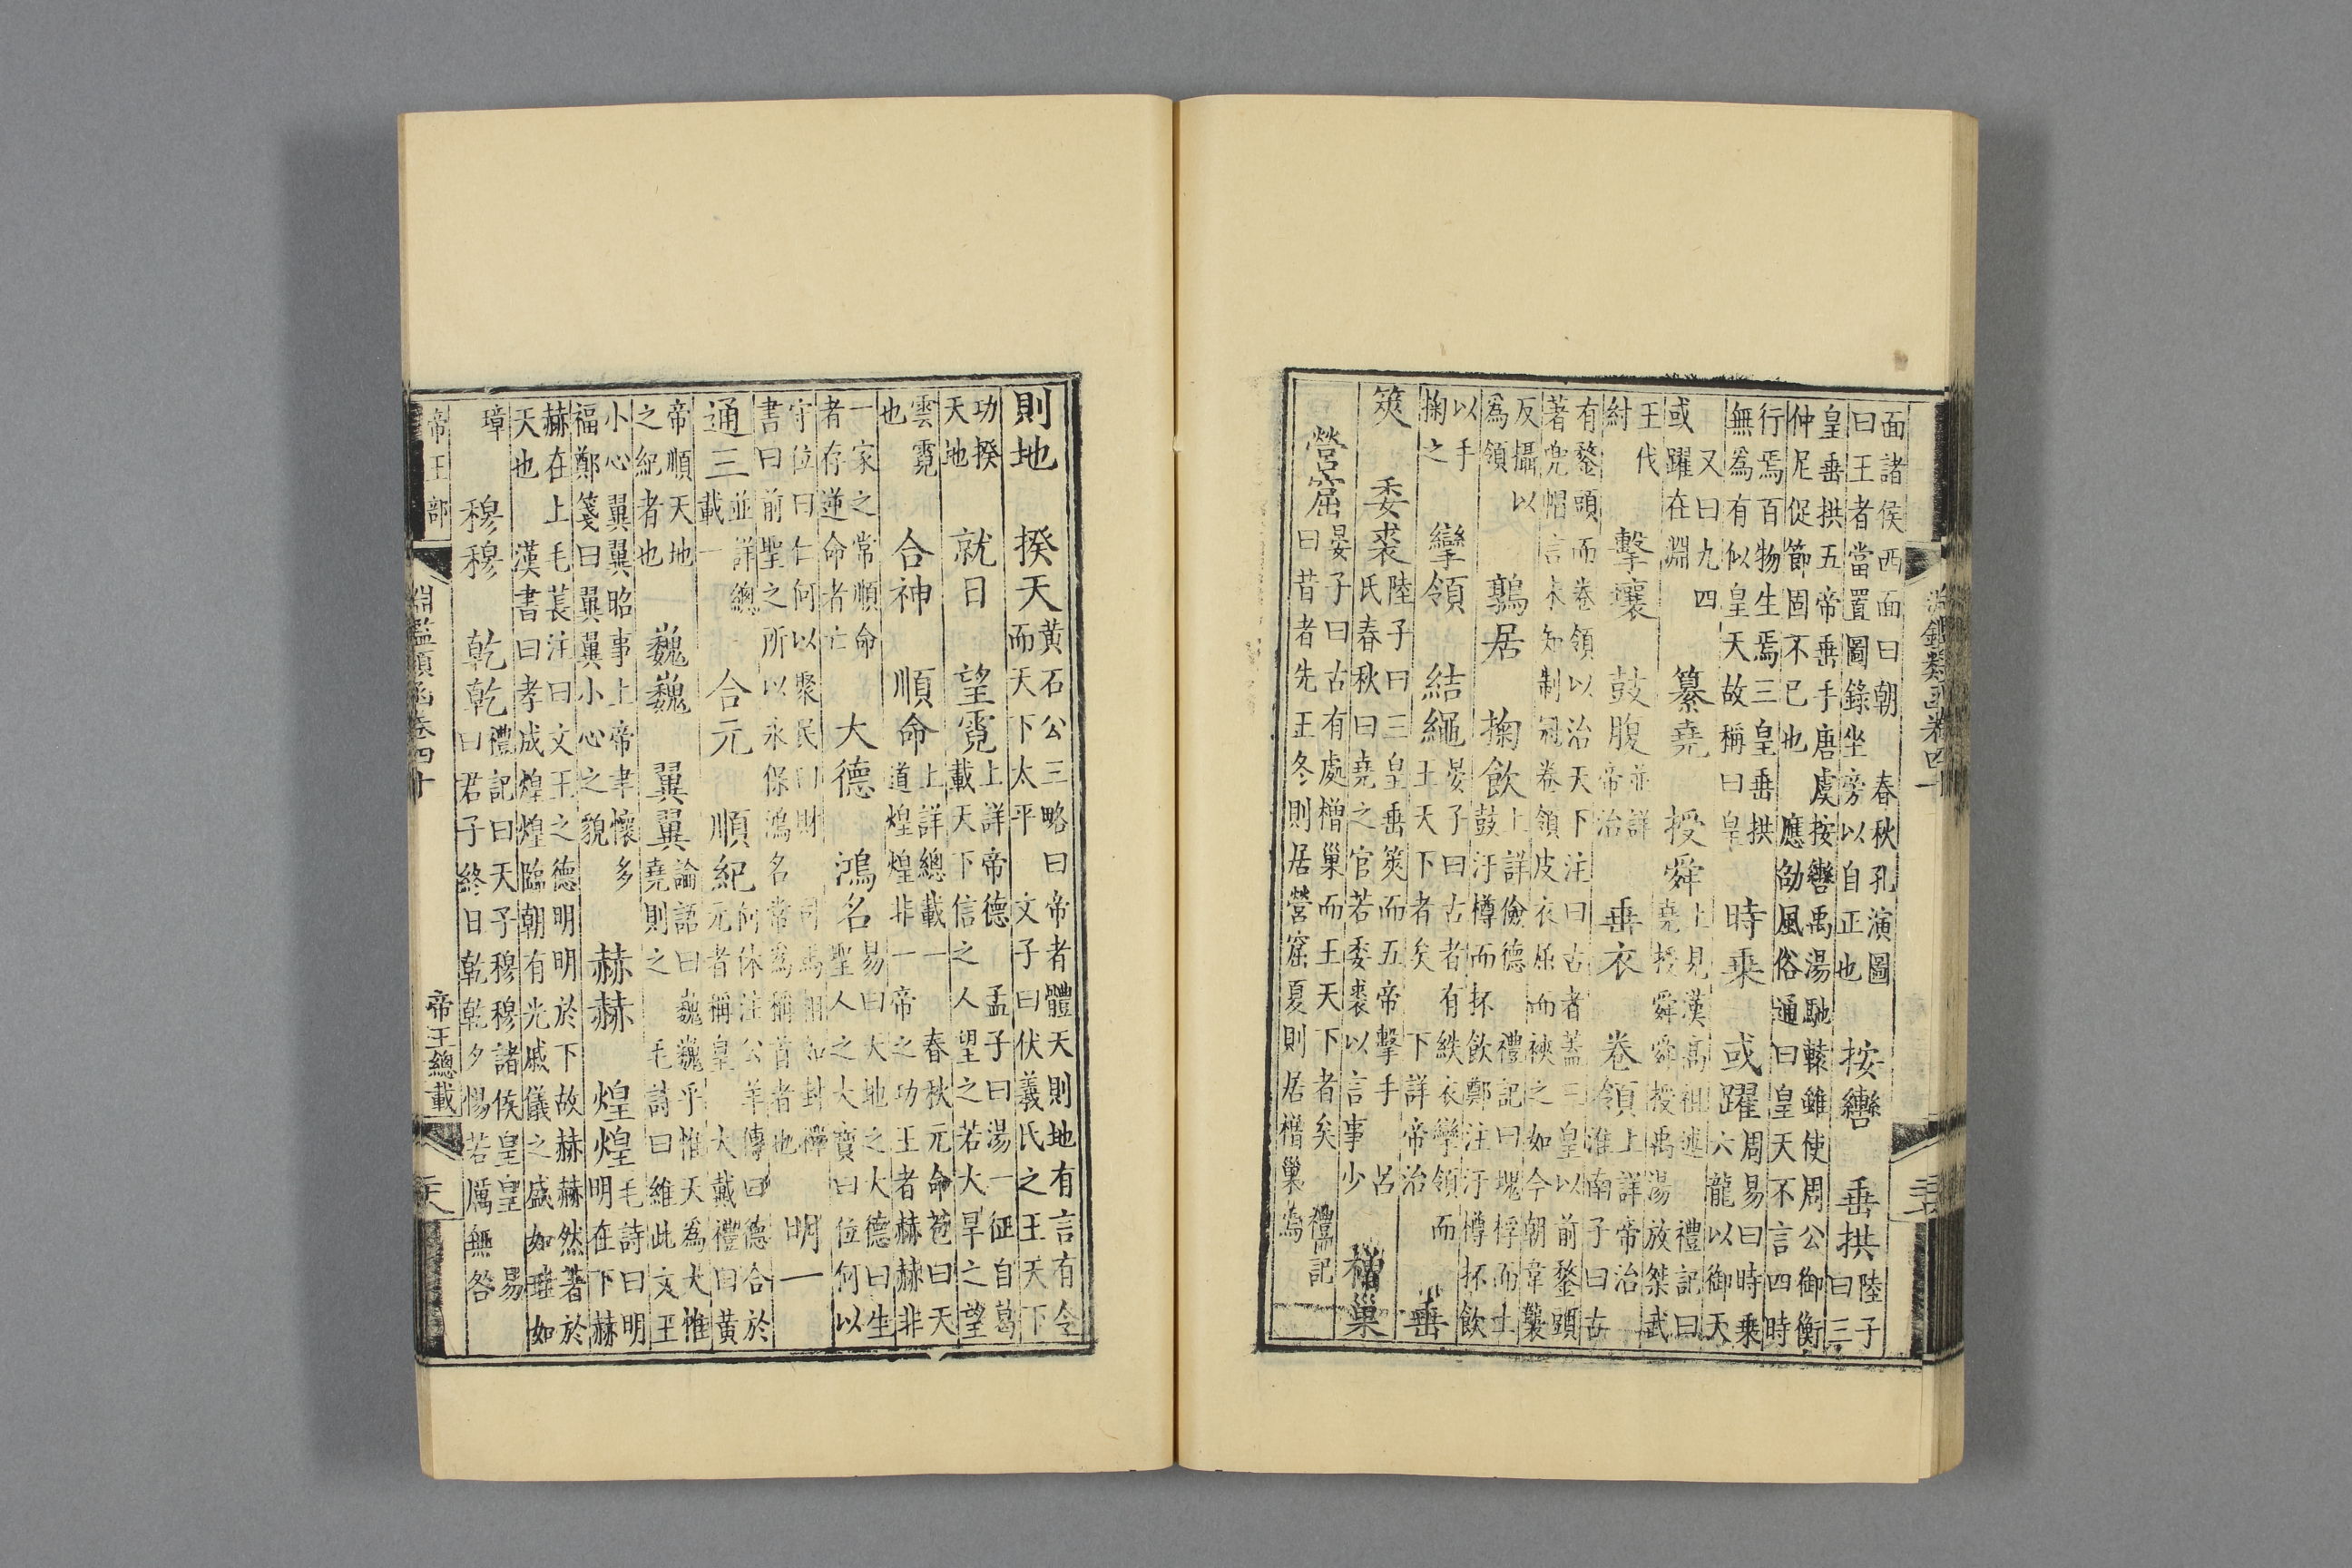 淵鑑類函卷四十
面諸侯西面曰朝　春秋孔演圖
曰王者當置圖錄坐旁以自正也
按轡　垂拱
陸子
曰三
皇垂拱五帝垂手唐虞按轡禹湯馳轅雖使周公御衡
仲尼促節固不已也　應劭風俗通曰皇天不言四時
行焉百物生焉三皇垂拱
無爲有似皇天故稱曰皇
時乘　或躍
周易曰時乘
六龍以御天
又曰九四
或躍在淵
纂堯　授舜
上見漢高祖述　禮記曰
堯授舜舜授禹湯放桀武
王伐
紂
擊壤　鼓腹
並詳
帝治
垂衣　卷領
上詳帝治
淮南子曰古
有鍪頭而卷領以治天下注曰古者蓋三皇以前鍪頭
著兜帽言未知制冠卷領皮衣屈而袂之如今朝韋襲
反攝以
爲領
鶉居　掬飲
上詳儉德　禮記曰塊桴而土
鼓汙樽而抔飲鄭注汙樽抔飲
以手
掬之
攣領　結繩
晏子曰古者有紩衣攣領而
王天下者矣　下詳帝治
垂
筴　委裘
陸子曰三皇垂筴而五帝擊手　呂
氏春秋曰堯之官若委裘以言事少
橧巢
營窟
晏子曰古有處橧巢而王天下者矣　禮記
曰昔者先王冬則居營窟夏則居橧巢　為
則地　揆天
黃石公三略曰帝者體天則地有言有令
而天下太平　文子曰伏羲氏之王天下
功揆
天地
就日　望霓
上詳帝德　孟子曰湯一征自葛
載天下信之人望之若大旱之望
雲霓
也
合神　順命
上詳總載一　春秋元命苞曰天
道煌煌非一帝之功王者赫赫非
一家之常順命
者存逆命者亡
大德　鴻名
易曰大地之大德曰生
聖人之大寶曰位何以
守位曰仁何以聚民曰財　司馬相如封禪
書曰前聖之所以永保鴻名常爲稱首者也
明一
通三
並詳總
載一
合元　順紀
何休注公羊傳曰德合於
元者稱皇　大戴禮曰黃
帝順天地
之紀者也
巍巍　翼翼
論語曰巍巍乎惟天為大惟
堯則之　毛詩曰維此文王
小心翼翼昭事上帝聿懷多
福鄭箋曰翼翼小心之貌
赫赫　煌煌
毛詩曰明
明在下赫
赫在上毛萇注曰文王之德明明於下故赫赫然著於
天也　漢書曰孝成煌煌臨朝有光威儀之盛如珪如
璋
穆穆　乾乾
禮記曰天子穆穆諸侯皇皇　易
曰君子終日乾乾夕惕若厲無咎
帝王部　淵鑑類函卷四十　帝王總載